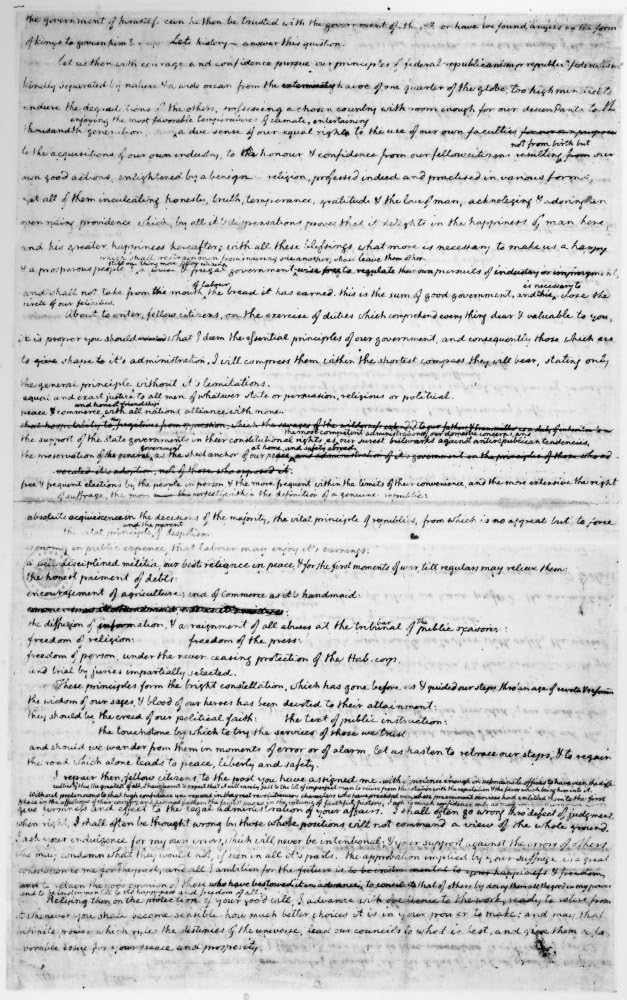 the government of himself. can he then be trusted with the government of others? or have we found angels in the form
of kings to govern him? Let history answer this question.
Let us then with courage and confidence pursue our principles of federal republicanism
kindly separated by nature & a wide ocean from the havoc of one quarter of the globe, too high minded to
endure the degradations of the others, possessing a chosen country with room enough for our descendants to the
enjoying the most favorable temperatures of climate, entertaining
thousandth generation, a due sense of our equal right to the use of our own faculties
not from birth but
to the acquisitions of our own industry, to the honour & confidence from our fellow citizens resulting from our
own good actions, enlightened by a benign religion, professed indeed and practised in various forms,
yet all of them inculcating honesty, truth, temperance, gratitude & the love of man, acknoleging & adoring an
overruling providence which, by all it's dispensations proves that it delights in the happiness of man here,
and his greater happiness hereafter; with all these blessings what more is necessary to make us a happy
which shall restrain men from injuring one another, shall leave them
still one thing more fellow citizens
& a prosperous people? a wise & frugal government, to regulate their own pursuits of industry or improvement,
of labour is necessary to
and shall not take from the mouth the bread it has earned. this is the sum of good government, and this close the
circle of our felicities.
About to enter, fellow citizens, on the exercise of duties which comprehend every thing dear & valuable to you,
it is proper you should what I deem the essential principles of our government, and consequently those which are
to shape it's administration. I will compress them within the shortest compass they will bear, stating only
the general principle without it's limitations.
equal and exact justice to all men of whatever state or persuasion, religious or political.
and honest friendship
peace & commerce with all nations, alliance with none.
the most competent administrations of our domestic concerns, and
the support of the state governments in their constitutional rights, as our surest bulwarks against antirepublican tendencies,
government at home, and safety abroad
the preservation of the general, as the sheet anchor of our peace
free & frequent elections by the people in person & the more frequent within the limits of their convenience, and the more extensive the right
of suffrage, the more within the definition of a genuine republic.
absolute acquiescence in the decisions of the majority, the vital principle of republics, from which is no appeal but to force
and the parent
the vital principle of despotism.
economy in public expence, that labour may enjoy it's earnings:
a well disciplined militia, our best reliance in peace, & for the first moments of war, till regulars may relieve them:
the honest paiment of debts:
encouragement of agriculture; and of commerce as it's handmaid:
the diffusion of information, & arraignment of all abuses at the bar of the public reason:
freedom of religion: freedom of the press:
freedom of person, under the never ceasing protection of the Hab. corp.
and trial by juries impartially selected.
These principles form the bright constellation, which has gone before us & guided our steps thro an age of
the wisdom of our sages, & blood of our heroes has been devoted to their attainment:
they should be the creed of our political faith: the text of public instruction:
the touchstone by which to try the services of those we trust
and should we wander from them in moments of error or of alarm let us hasten to retrace our steps, & to regain
the road which alone leads to peace, liberty and safety.
I repair then, fellow citizens, to the post you have assigned me. with experience enough in subordinate offices to have seen the
culties of this the greatest of all, I have learnt to expect that it will rarely fall to the lot of imperfect man to retire from this station with the reputation & the favor which bring him into it.
Without pretensions to that high confidence you reposed in our great revolutionary character whose preeminent services had entitled him to the first
place in the affections of their country and destined for him the fairest page in the volume of faithful history, I ask so much confidence only as may
give firmness and effect to the legal administration of your affairs. I shall often go wrong thro defect of judgment.
when right, I shall often be thought wrong by those whose positions will not command a view of the whole ground.
I ask your indulgence for my own errors, which will never be intentional: & your support against the errors of others,
who may condemn what they would not, if seen in all it's parts. the approbation implied by your suffrage is a great
consolation to me for the past, and all ambition for the future is
retain the good opinion of those who have bestowed it in advance, to conciliate that of others by doing them all the good in my power
and to be instrumental to the happiness and freedom of all.
Relying then on the protection of your good will, I advance with obedience to the work, ready to retire from
it whenever you shall become sensible how much better choices it is in your power to make; and may that
infinite power which rules the destinies of the universe, lead our councils to what is best, and give them a fa-
vorable issue for your peace and prosperity.